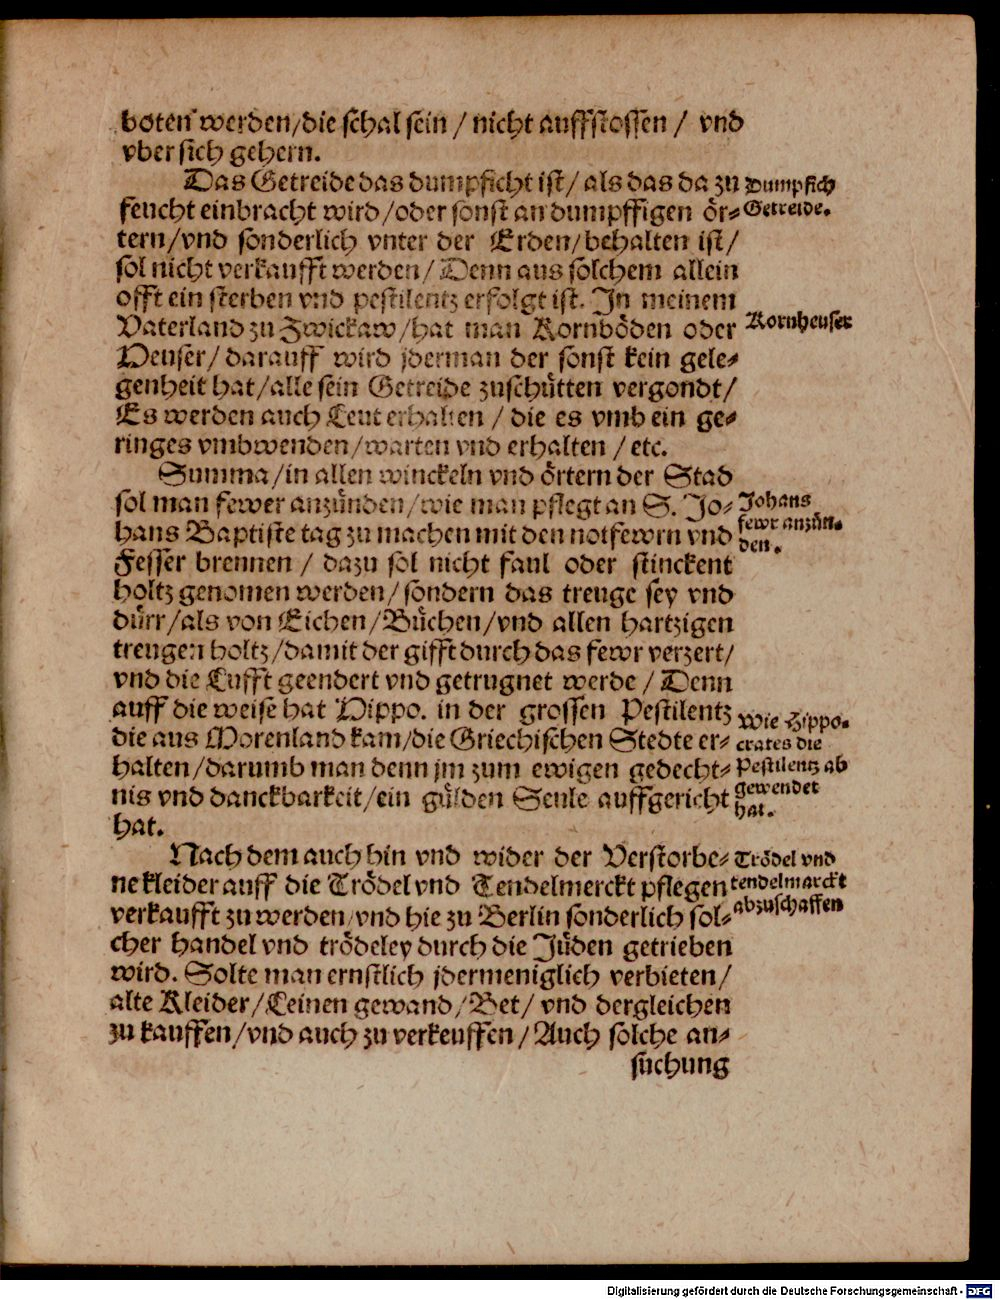 boten werden/die schal sein / nicht auffstossen / vnd
vber sich gehern.
Das Getreide das dumpficht ist/ als das da zu
feucht einbracht wird/oder sonst an dumpffigen ör-
tern/vnd sonderlich vnter der Erden/behalten ist/
sol nicht verkaufft werden/ Denn aus solchem allein
offt ein sterben vnd pestilentz erfolgt ist. In meinem
Vaterland zu Zwickaw/hat man Kornböden oder
Heuser/ darauff wird jderman der sonst kein gele-
genheit hat/alle sein Getreide zuschütten vergondt/
Es werden auch Leut erhalten / die es vmb ein ge-
ringes vmbwenden/warten vnd erhalten / etc.
Summa/in allen winckeln vnd örtern der Stad
sol man fewer anzünden/wie man pflegt an S. Jo-
hans Baptiste tag zu machen mit den notfewrn vnd
Fesser brennen / dazu sol nicht faul oder stinckent
holtz genomen werden/ sondern das treuge sey vnd
dürr/als von Eichen/Büchen/vnd allen hartzigen
treugen holtz/damit der gifft durch das fewr verzert/
vnd die Lufft geendert vnd getrugnet werde / Denn
auff die weise hat Hippo. in der grossen Pestilentz
die aus Morenland kam/die Griechischen Stedte er-
halten/darumb man denn jm zum ewigen gedecht-
nis vnd danckbarkeit/ein gülden Seule auffgericht
hat.
Nach dem auch hin vnd wider der Verstorbe-
ne kleider auff die Trödel vnd Tendelmerckt pflegen
verkaufft zu werden/vnd hie zu Berlin sonderlich sol-
cher handel vnd trödeley durch die Jüden getrieben
wird. Solte man ernstlich jdermeniglich verbieten/
alte Kleider/Leinen gewand/Bet/ vnd dergleichen
zu kauffen/vnd auch zu verkeuffen/ Auch solche an-
suchung
Dumpfich
Getreide.
Kornheuser
Johans
fewr anzün-
den.
Wie Hippo-
crates die
Pestilentz ab
gewendet
hat.
Trödel vnd
tendelmarckt
abzuschaffen
Digitalisierung gefördert durch die Deutsche Forschungsgemeinschaft - DFG